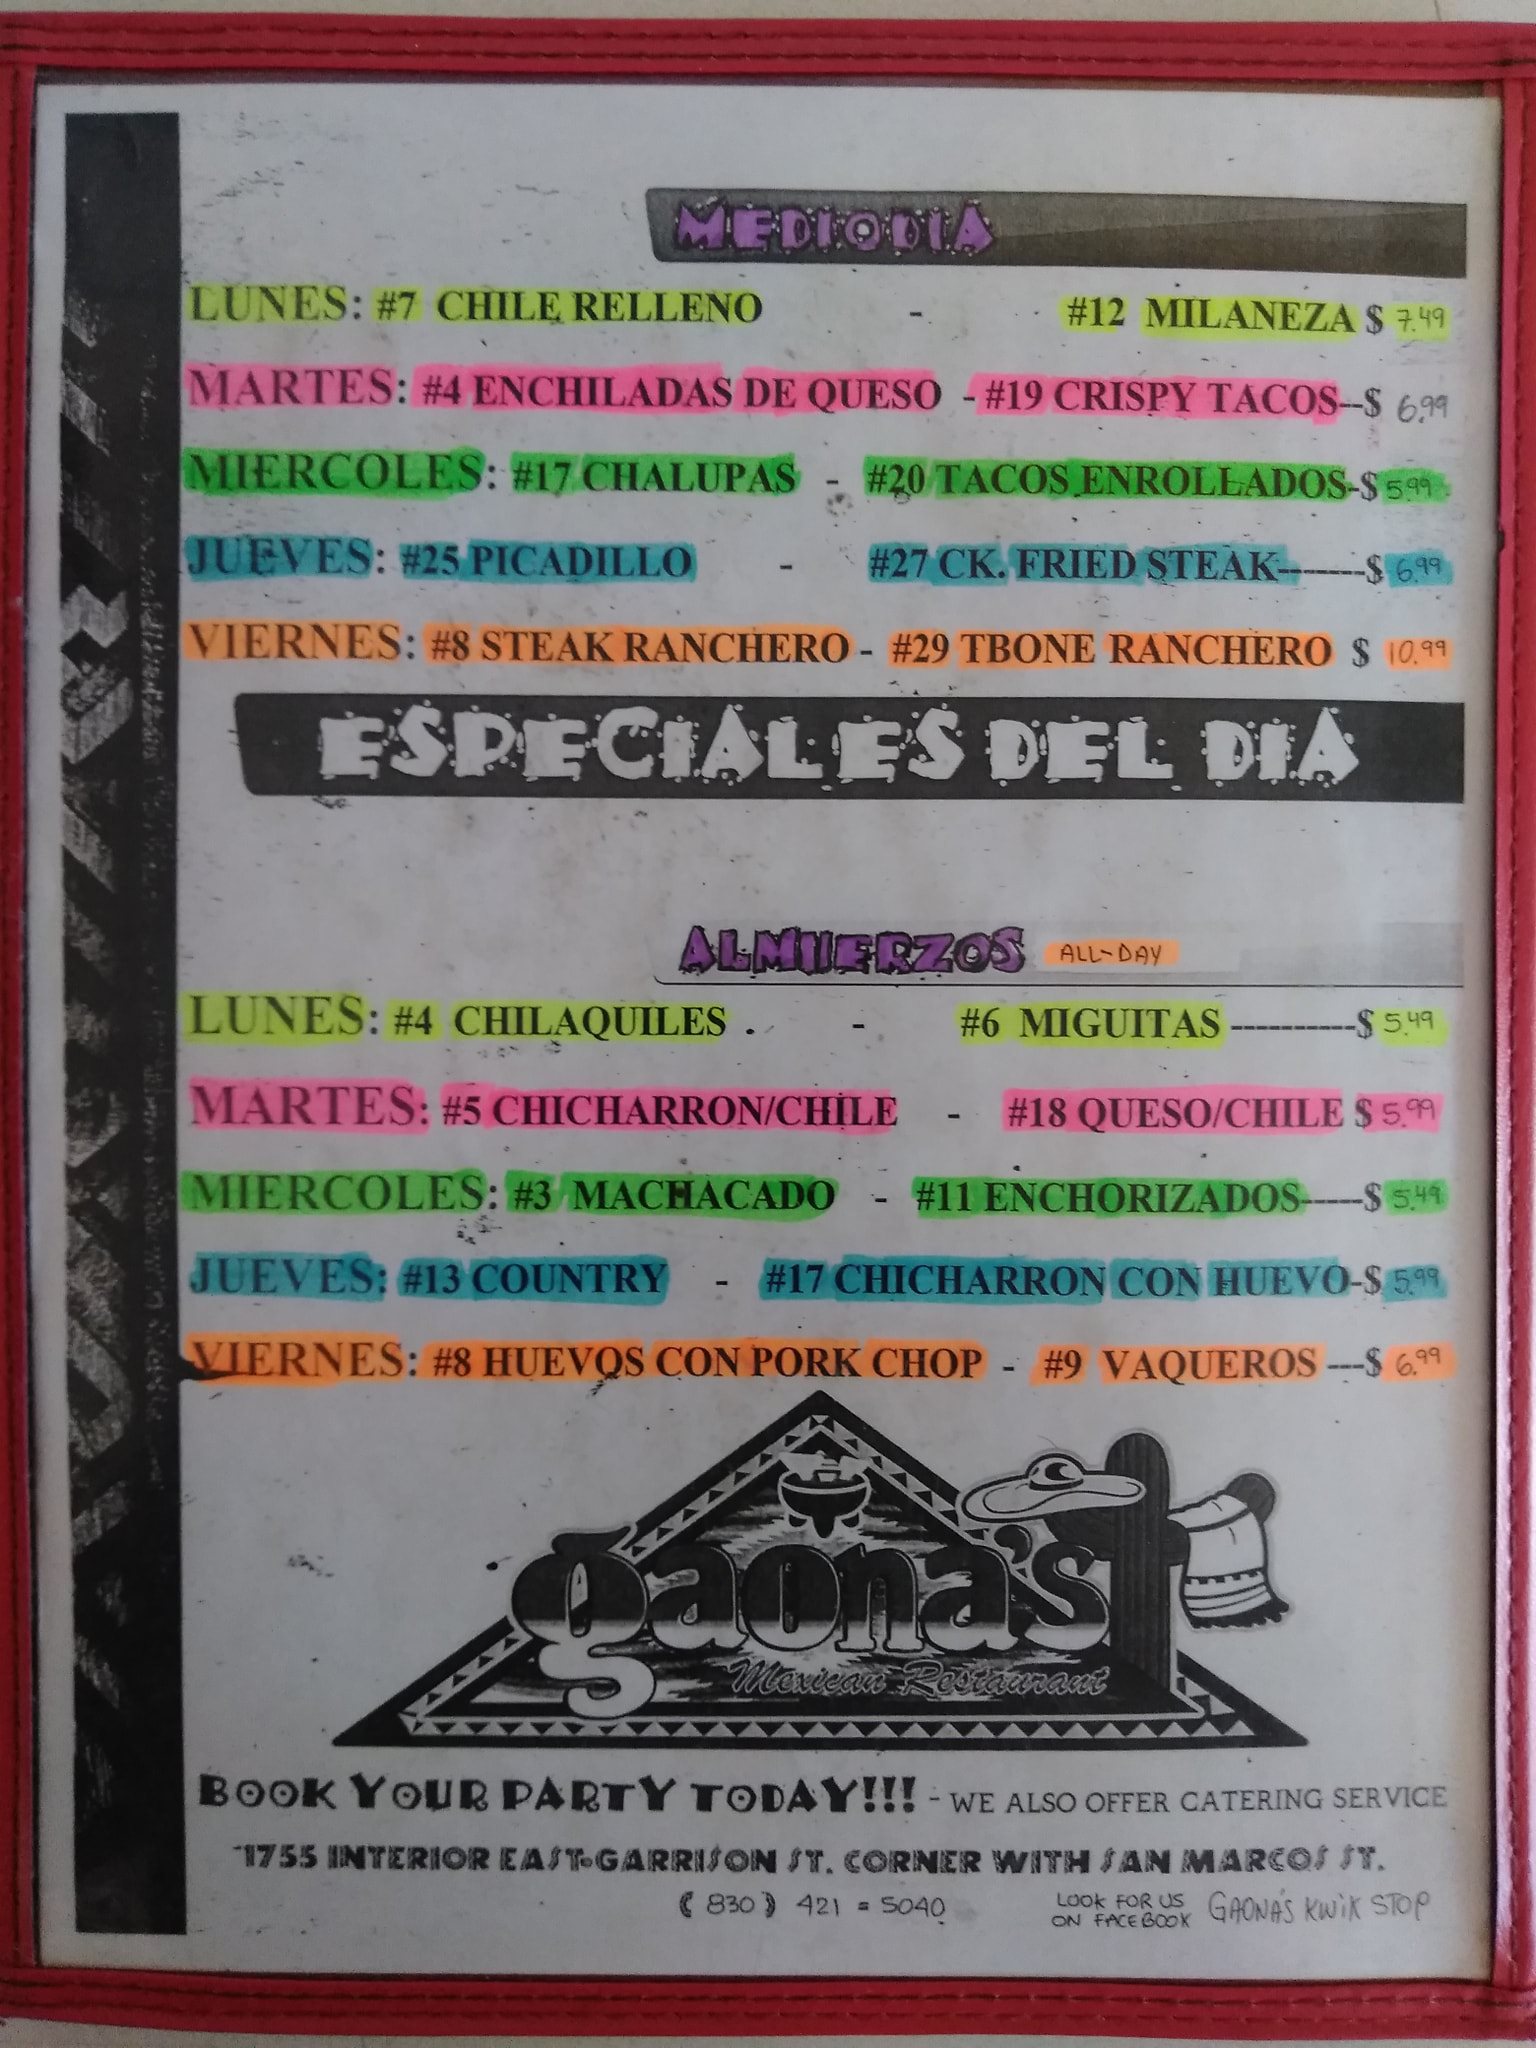 MEDIODIA
LUNES: #7 CHILE RELLENO - #12 MILANEZA $ 7.49
MARTES: #4 ENCHILADAS DE QUESO - #19 CRISPY TACOS--$ 6.99
MIERCOLES: #17 CHALUPAS - #20 TACOS ENROLLADOS-$ 5.99
JUEVES: #25 PICADILLO - #27 CK. FRIED STEAK-------$ 6.99
VIERNES: #8 STEAK RANCHERO - #29 TBONE RANCHERO $ 10.99
ESPECIALES DEL DIA
ALMUERZOS ALL-DAY
LUNES: #4 CHILAQUILES . - #6 MIGUITAS ----------$ 5.49
MARTES: #5 CHICHARRON/CHILE - #18 QUESO/CHILE $ 5.99
MIERCOLES: #3 MACHACADO - #11 ENCHORIZADOS-----$ 5.49
JUEVES: #13 COUNTRY - #17 CHICHARRON CON HUEVO-$ 5.99
VIERNES: #8 HUEVOS CON PORK CHOP - #9 VAQUEROS ---$ 6.99
gaona's
Mexican Restaurant
BOOK YOUR PARTY TODAY!!! - WE ALSO OFFER CATERING SERVICE
1755 INTERIOR EAST GARRISON ST. CORNER WITH SAN MARCOS ST.
(830) 421 = 5040 LOOK FOR US ON FACEBOOK GAONA'S KWIK STOP